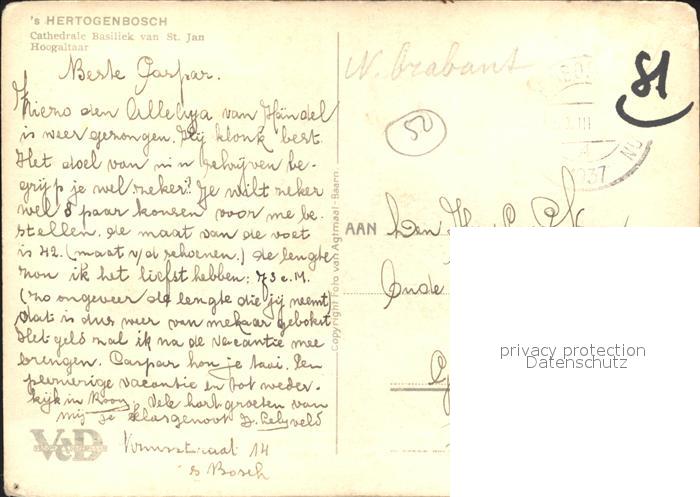 's HERTOGENBOSCH
Cathedrale Basiliek van St. Jan
Hoogaltaar
Beste Caspar.
Hierzo den Alleluja van Händel
is weer gezongen. Hij klonk best.
Het doel van m'n schrijven be-
grijp je wel zeker? Je wilt zeker
wel 3 paar kousen voor me be-
stellen. de maat van de voet
is 42. (maat v/d schoenen.) de lengte
zou ik het liefst hebben: 73 c.M.
(zo ongeveer de lengte die jij neemt)
dat is dus weer van mekaar gebokst
Het geld zal ik na de vacantie mee
brengen. Caspar hou je taai. Een
vacantie en tot weder-
kijk in Rooy. Vele hart. groeten van
mij je klasgenoot J. Lelyveld
14
s Bosch
Copyright Foto van Agtmaal-Baarn.
N. Brabant
50
51
III
1937
AAN
den
Oude
privacy protection
Datenschutz
VcD